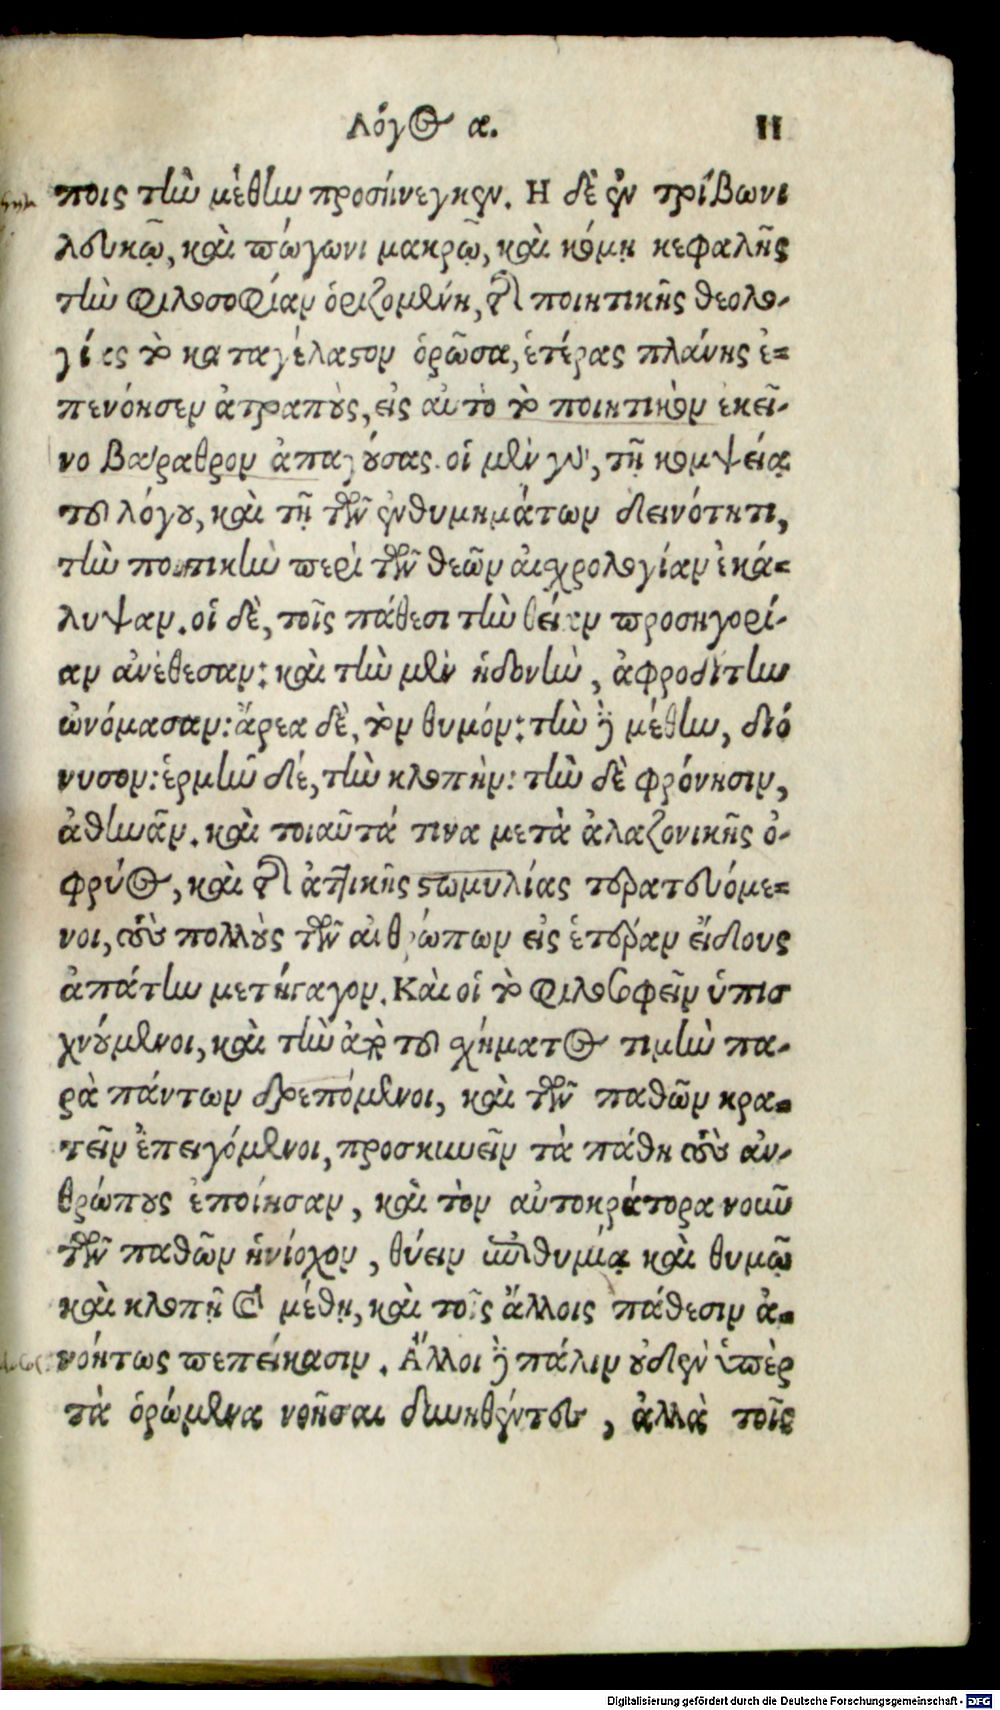 Λόγος α. 11
ποις τὴν μέθην προσήνεγκεν. Η δὲ ἐν τρίβωνι
λευκῷ, καὶ πώγωνι μακρῷ, καὶ κόμῃ κεφαλῆς
τὴν φιλοσοφίαν ὁριζομένη, τῆς ποιητικῆς θεολο-
γίας τὸ καταγέλαστον ὁρῶσα, ἑτέρας πλάνης ἐ-
πενόησεν ἀτραποὺς, εἰς αὐτὸ τὸ ποιητικὸν ἐκεῖ-
νο βάραθρον ἀπαγούσας. οἱ μὲν γὰρ, τῇ κομψείᾳ
τοῦ λόγου, καὶ τῇ τῶν ἐνθυμημάτων δεινότητι,
τὴν ποιητικὴν περὶ τῶν θεῶν αἰσχρολογίαν ἐκά-
λυψαν. οἱ δὲ, τοῖς πάθεσι τὴν θείαν προσηγορί-
αν ἀνέθεσαν: καὶ τὴν μὲν ἡδονὴν, ἀφροδίτην
ὠνόμασαν: ἄρεα δὲ, τὸν θυμόν: τὴν δὲ μέθην, διό
νυσον: ἑρμῆν δέ, τὴν κλοπὴν: τὴν δὲ φρόνησιν,
ἀθηνᾶν. καὶ τοιαῦτά τινα μετὰ ἀλαζονικῆς ὀ-
φρύος, καὶ τῆς ἀττικῆς στωμυλίας τερατευόμε-
νοι, τοὺς πολλοὺς τῶν ἀνθρώπων εἰς ἑτέραν εἴδους
ἀπάτην μετήγαγον. Καὶ οἱ τὸ φιλοσοφεῖν ὑπισ
χνούμενοι, καὶ τὴν ἀπὸ τοῦ σχήματος τιμὴν πα-
ρὰ πάντων δρεπόμενοι, καὶ τῶν παθῶν κρα-
τεῖν ἐπειγόμενοι, προσκυνεῖν τὰ πάθη τοὺς ἀν-
θρώπους ἐποίησαν, καὶ τὸν αὐτοκράτορα νοῦν
τῶν παθῶν ἡνίοχον, θύειν ἐπιθυμίᾳ καὶ θυμῷ
καὶ κλοπῇ καὶ μέθῃ, καὶ τοῖς ἄλλοις πάθεσιν ἀ-
νοήτως πεπείκασιν. Ἄλλοι δὲ πάλιν οὐδὲν ὑπὲρ
τὰ ὁρώμενα νοῆσαι δυνηθέντες, ἀλλὰ τοῖς
Digitalisierung gefördert durch die Deutsche Forschungsgemeinschaft - DFG